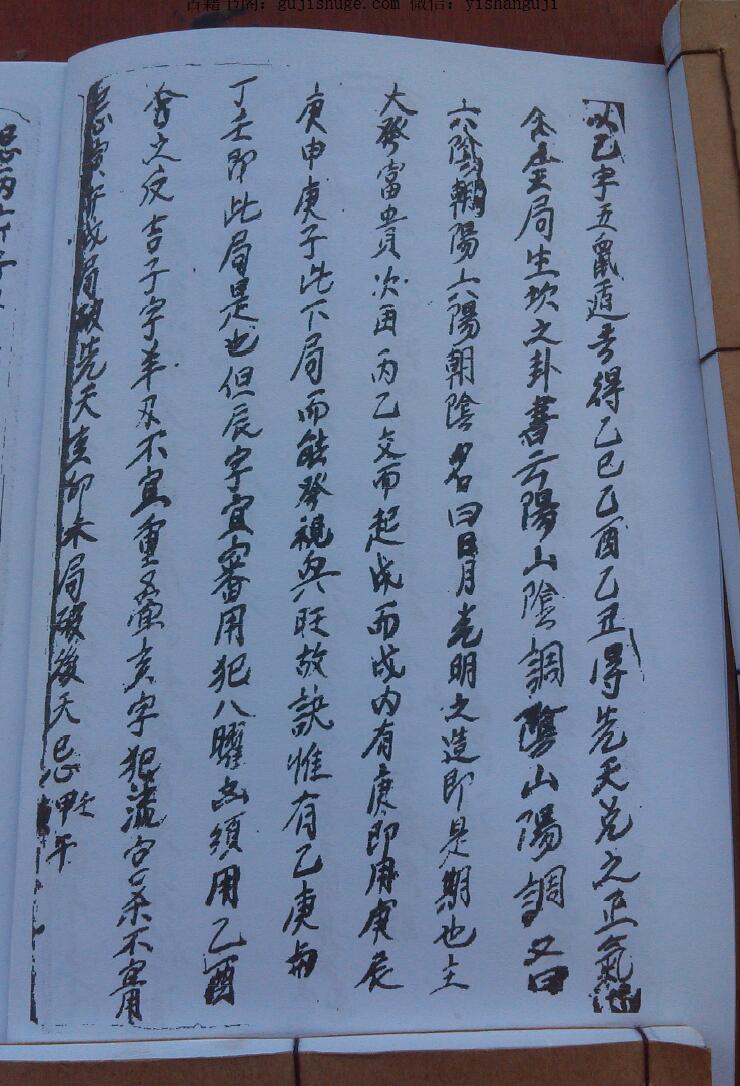 古籍书阁：gujishuge.com 微信：yishanguji
以乙字五鼠遁去得乙巳乙酉乙丑得先天兑之正氣
金局生坎之卦書云陽山陰調陰山陽調又曰
六陰朝陽六陽朝陰名曰日月光明之造即是期也主
大發富貴次再丙乙交而起戊而戊内有庚即庚庚辰
庚申庚子此下局而能發視興旺故訣惟有乙庚與
丁壬即此局是也但辰字宜審用犯八曜出須用乙酉
奮之反吉子字羊刃不宜重亥字犯不宜用
忌寅午戌局破先天亥卯未局破後天忌甲壬午
忌丙